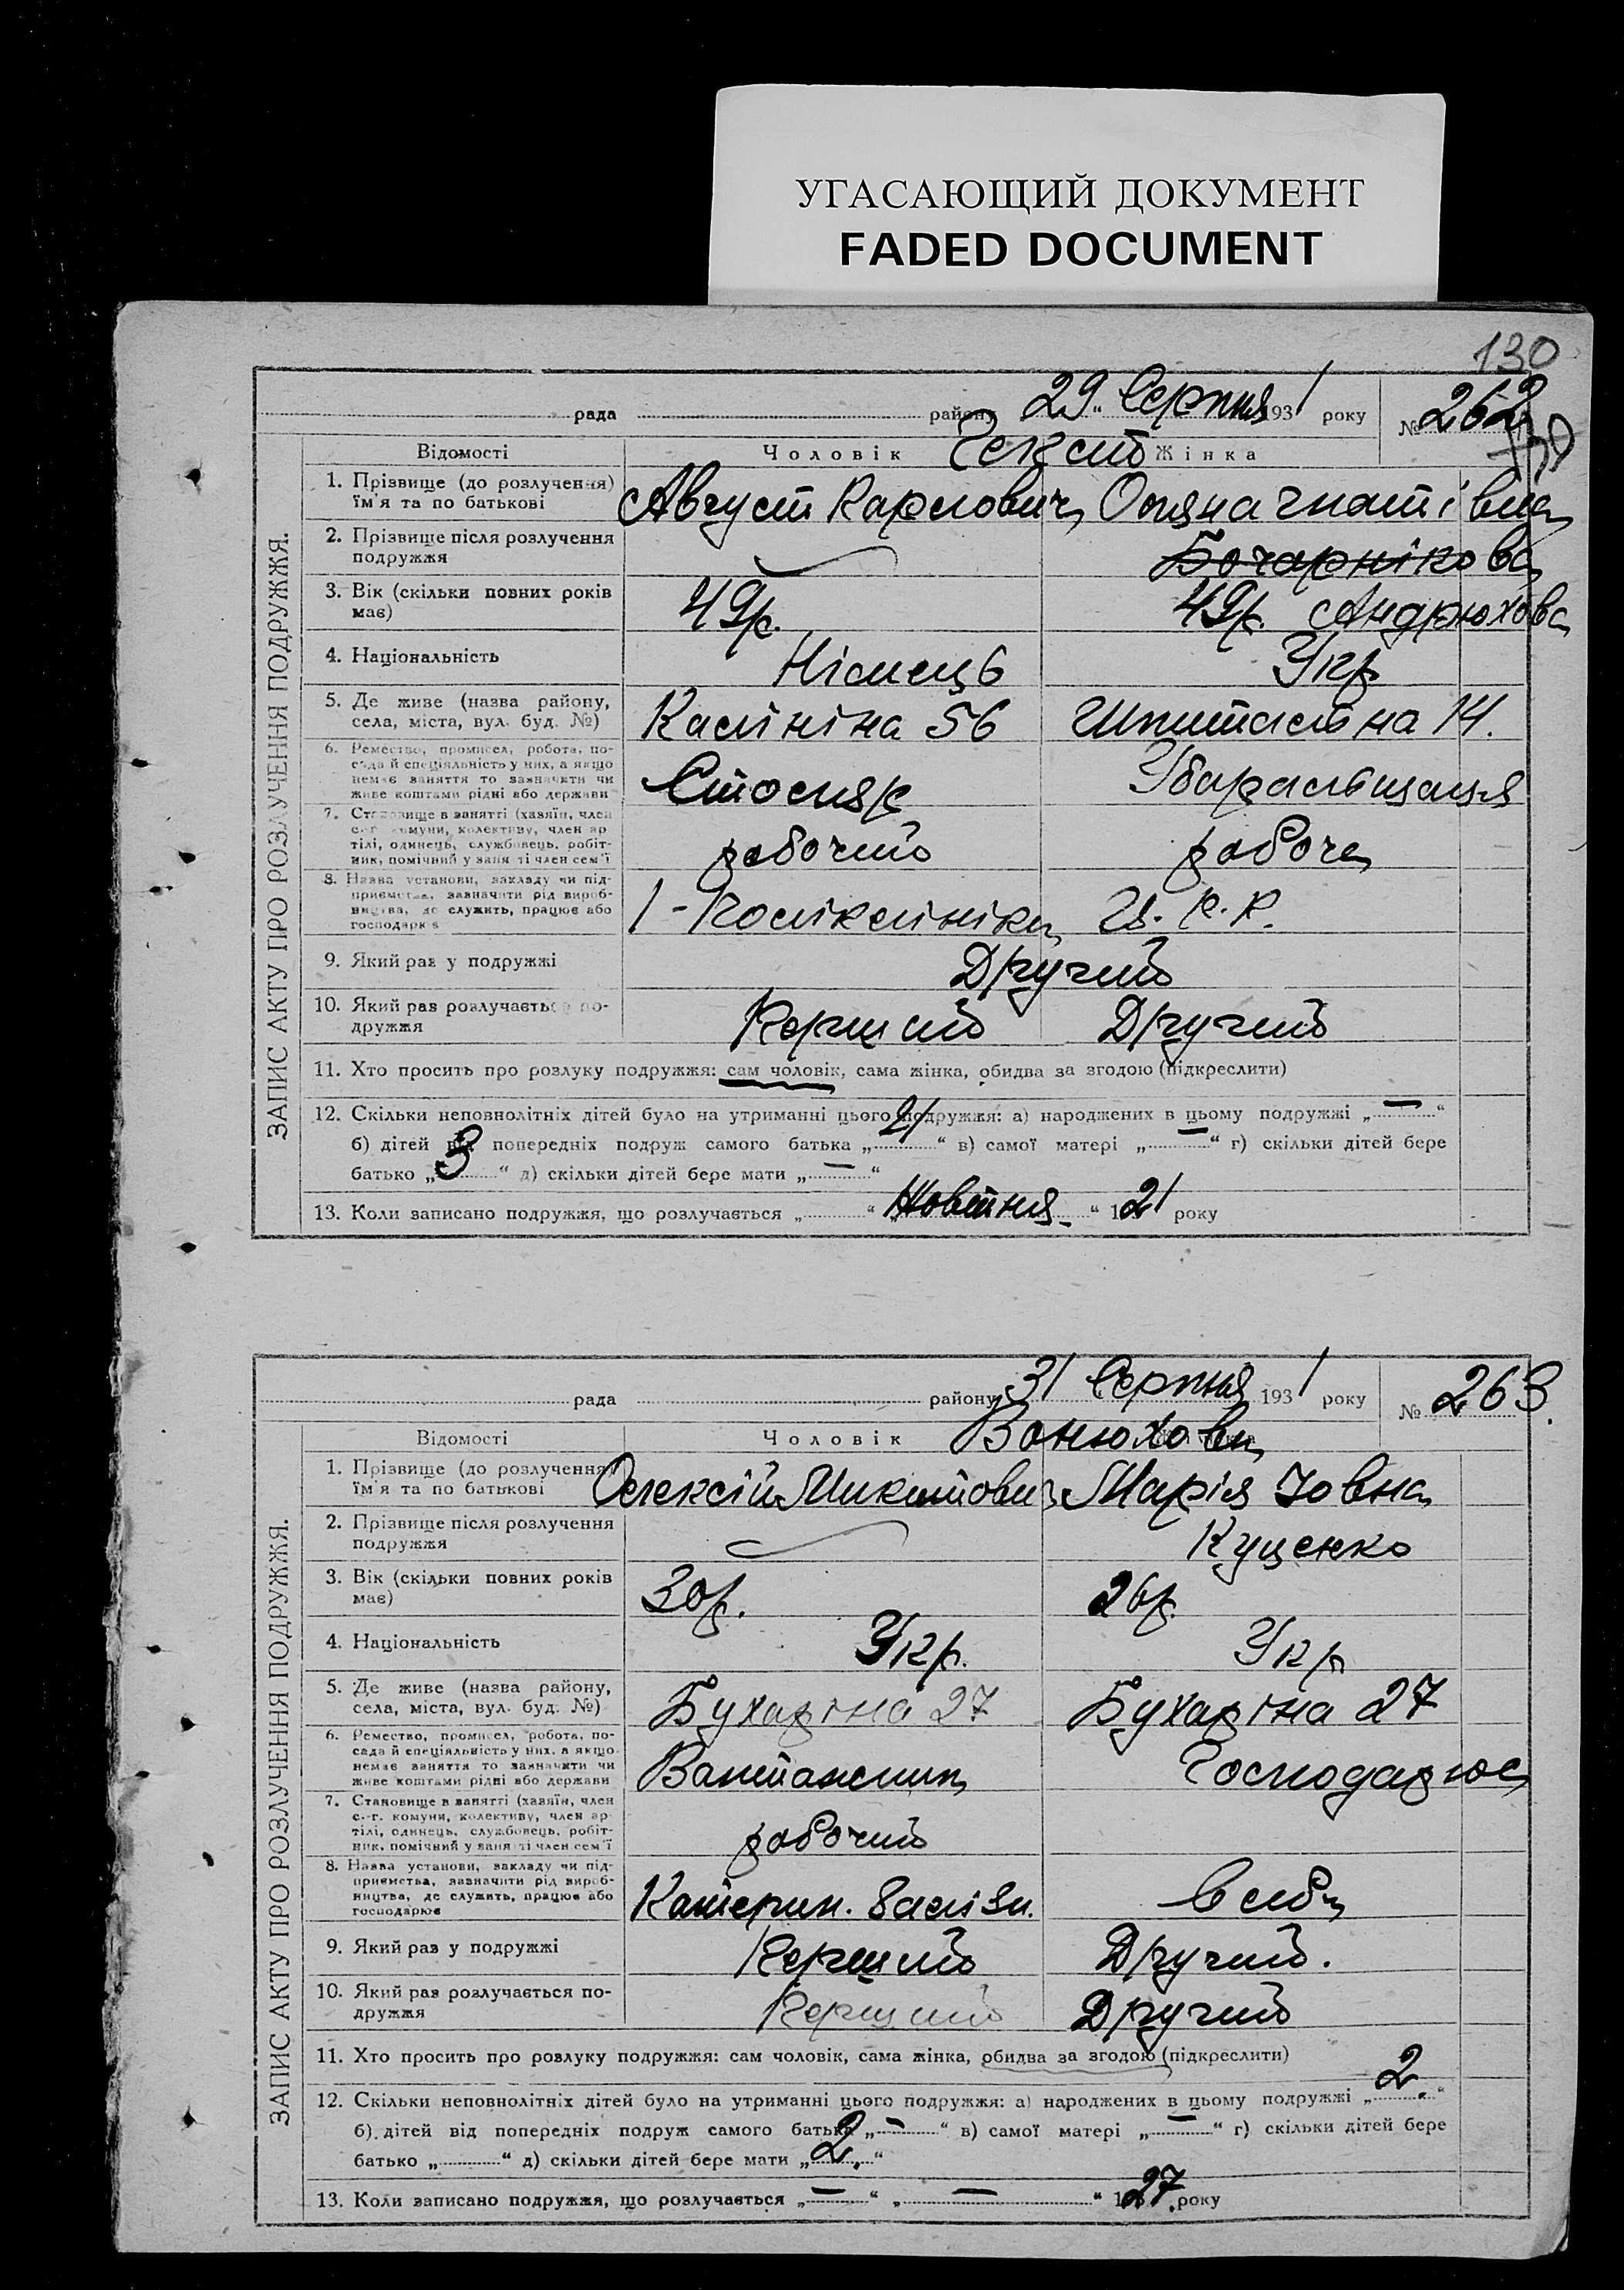 УГАСАЮЩИЙ ДОКУМЕНТ
FADED DOCUMENT
130
рада району 29 " Серпня 1931 року № 262
Відомості Чоловік Жінка
ЗАПИС АКТУ ПРО РОЗЛУЧЕННЯ ПОДРУЖЖЯ.
1. Прізвище (до розлучення)
їм'я та по батькові Август Карлович
2. Прізвище після розлучення
подружжя Бочарнікова
3. Вік (скільки повних років
має) 49р. 49р. Андрюхова
4. Національність Німець Укр
5. Де живе (назва району,
села, міста, вул. буд. №) Калініна 56 Шпитальна 14.
6. Ремество, промисел, робота, по-
сада й спеціяльність у них, а якщо
немає заняття то зазначити чи
живе коштами рідні або держави Столяр
7. Становище в занятті (хазяїн, член
с.-г. комуни, колективу, член ар
тілі, одинець, службовець, робіт-
ник, помічний у занятті член сем'ї робочий робоча
8. Назва установи, закладу чи під-
приємства, зазначити рід вироб-
ництва, де служить, працює або
господарює 1-Поліклініка
9. Який раз у подружжі Другий
10. Який раз розлучається по-
дружжя Перший Другий
11. Хто просить про розлуку подружжя: сам чоловік, сама жінка, обидва за згодою (підкреслити)
12. Скільки неповнолітніх дітей було на утриманні цього подружжя: а) народжених в цьому подружжі „ — "
б) дітей від попередніх подруж самого батька „ " в) самої матері „ — " г) скільки дітей бере
батько „ 3 " д) скільки дітей бере мати „ — "
13. Коли записано подружжя, що розлучається „ " „ Жовтня " 1 21 року
рада району 31 Серпня 1931 року № 263.
Відомості Чоловік Ванюхови
ЗАПИС АКТУ ПРО РОЗЛУЧЕННЯ ПОДРУЖЖЯ.
1. Прізвище (до розлучення)
їм'я та по батькові Олексій Микитович Марія Іовна
2. Прізвище після розлучення
подружжя Куценко
3. Вік (скільки повних років
має) 30р. 26р.
4. Національність Укр. Укр
5. Де живе (назва району,
села, міста, вул. буд. №) Бухаріна 27 Бухаріна 27
6. Ремество, промисел, робота, по-
сада й спеціяльність у них, а якщо
немає заняття то зазначити чи
живе коштами рідні або держави Вантажник Господарює
7. Становище в занятті (хазяїн, член
с.-г. комуни, колективу, член ар
тілі, одинець, службовець, робіт-
ник, помічний у занятті член сем'ї робочий
8. Назва установи, закладу чи під-
приємства, зазначити рід вироб-
ництва, де служить, працює або
господарює Катерин. Залізн.
9. Який раз у подружжі Перший Другий.
10. Який раз розлучається по-
дружжя Перший Другий
11. Хто просить про розлуку подружжя: сам чоловік, сама жінка, обидва за згодою (підкреслити)
12. Скільки неповнолітніх дітей було на утриманні цього подружжя: а) народжених в цьому подружжі „ 2. "
б) дітей від попередніх подруж самого батька „ — " в) самої матері „ — " г) скільки дітей бере
батько „ " д) скільки дітей бере мати „ 2. "
13. Коли записано подружжя, що розлучається „ — " „ — " 1 27. року